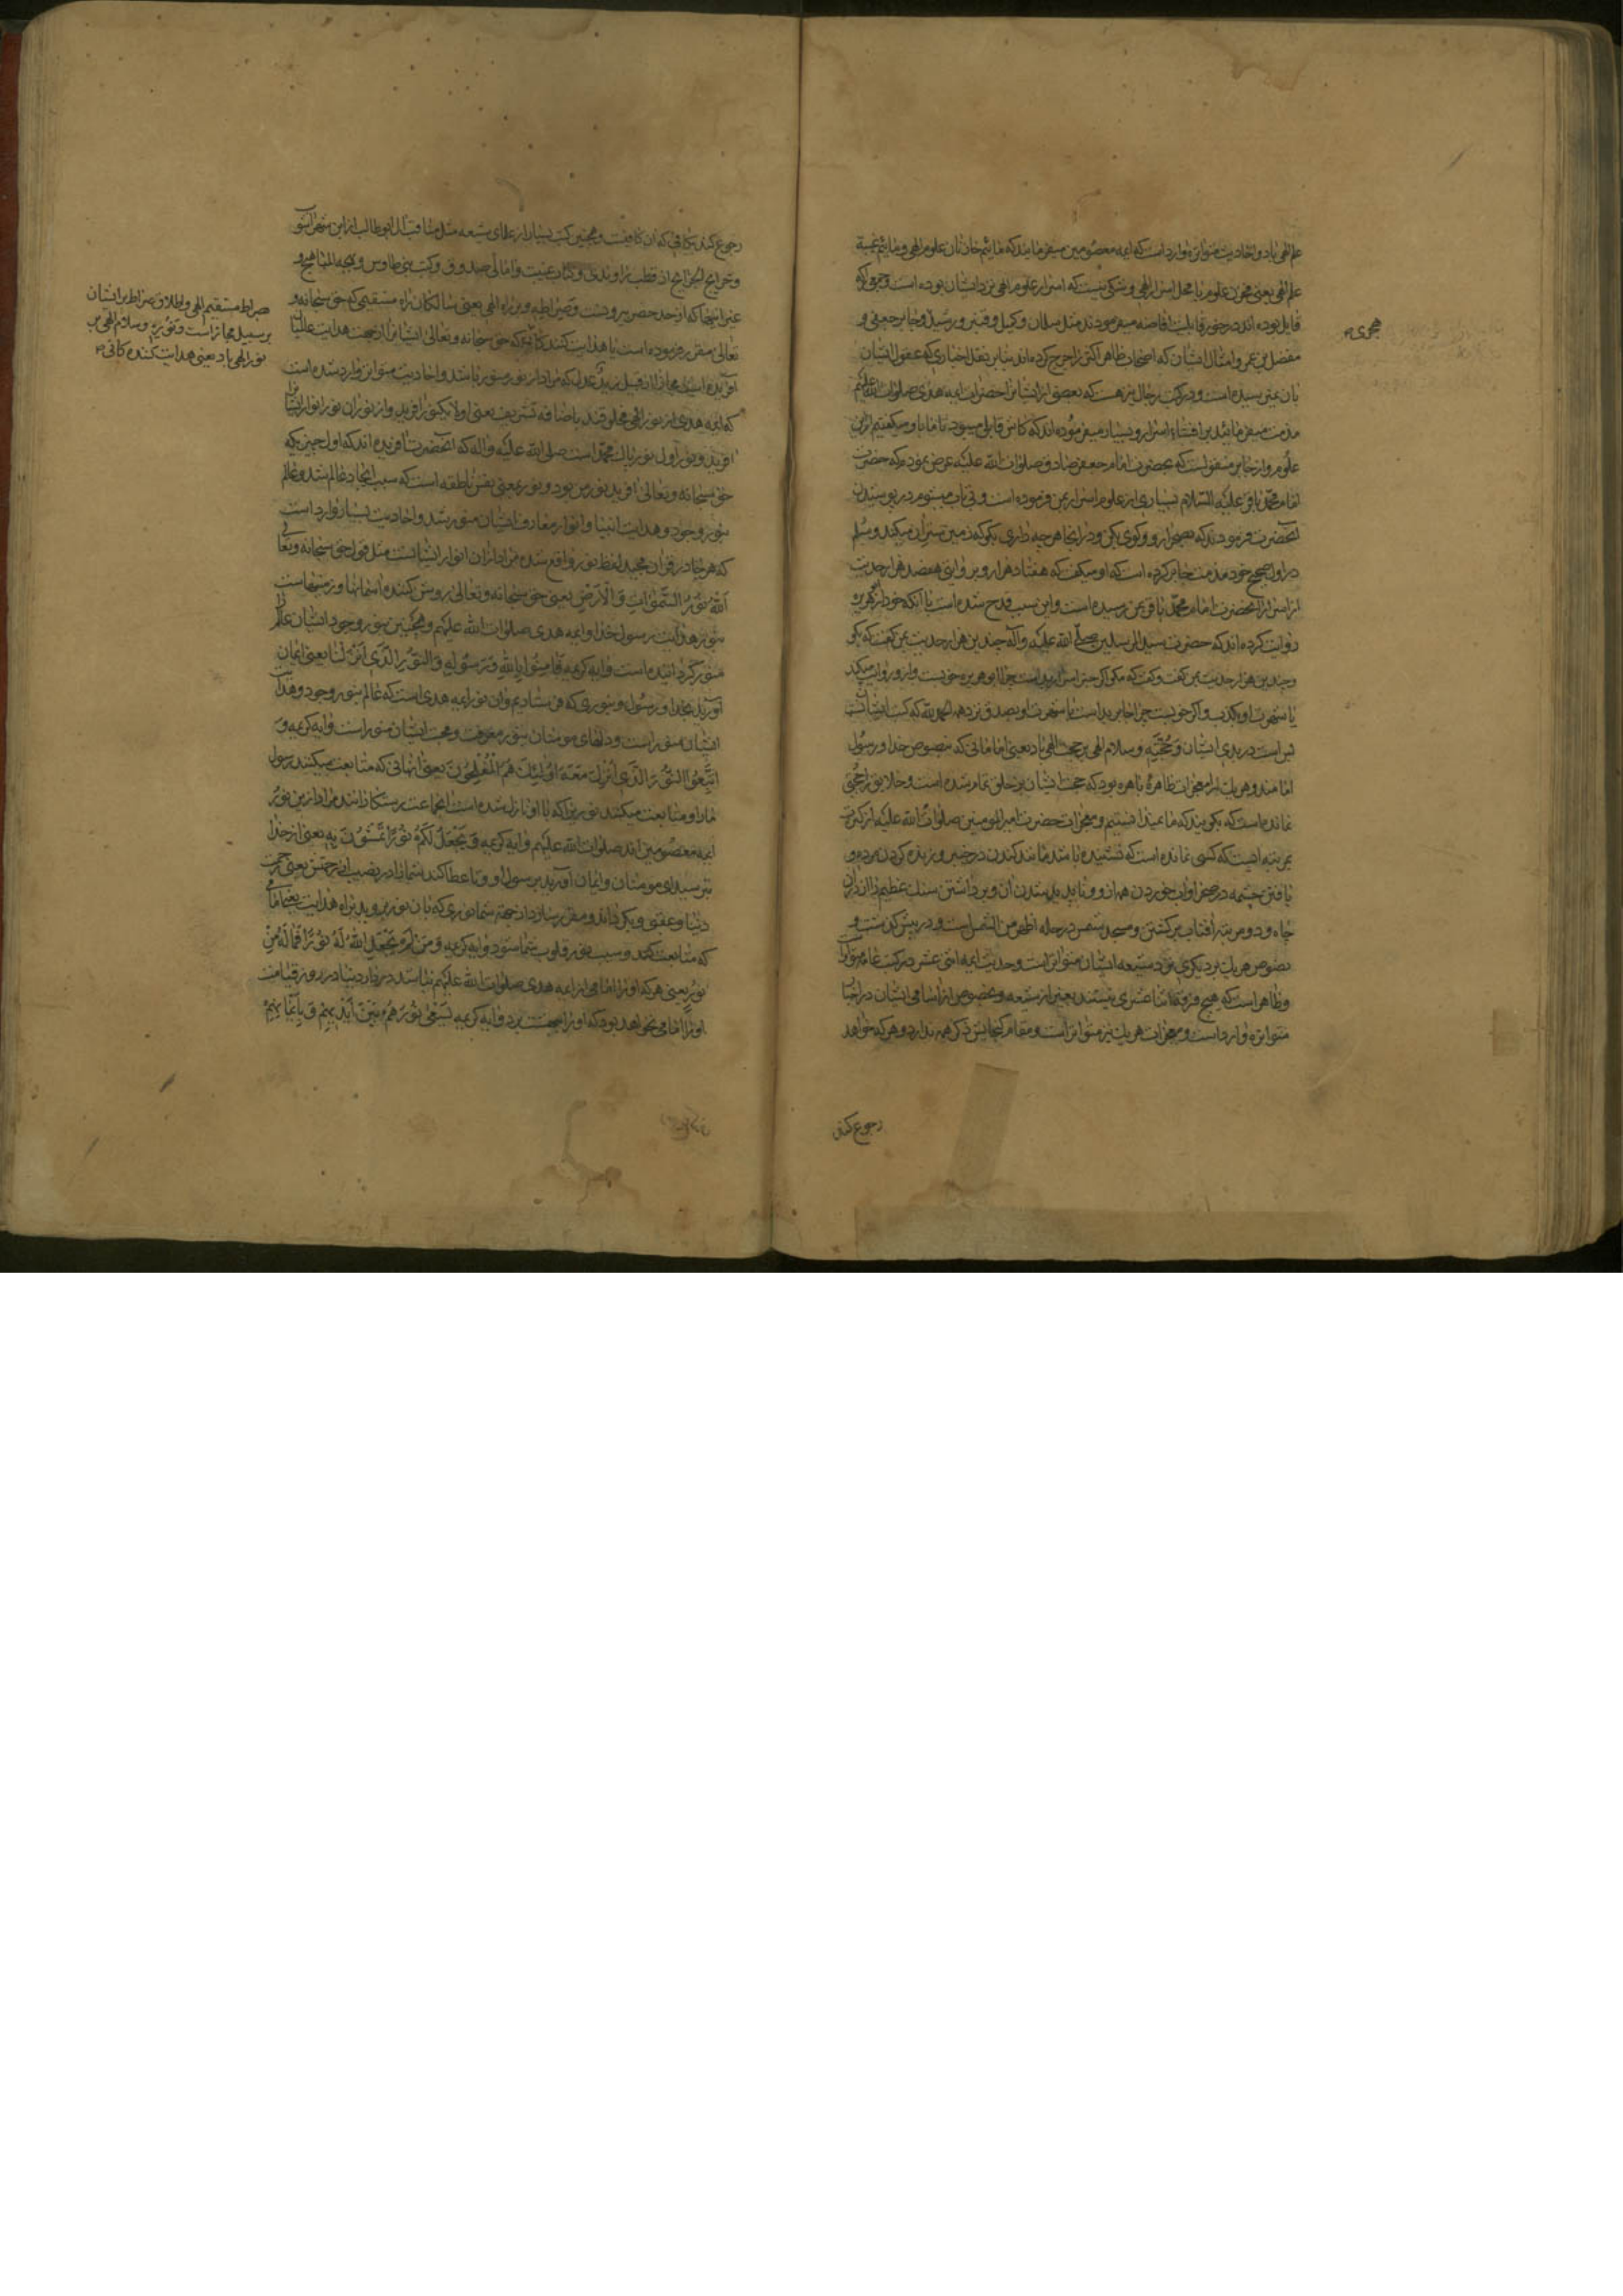 علم الهی باد و احادیث متواتره وارد است که ایمه معصومین میفرمایند که مائیم خازنان علوم الهی و مائیم عیبة
علم الهی یعنی مخزن علوم یا محل اسرار الهی و شکی نیست که اسرار علوم الهی نزد ایشان بوده است و هر که
قابل بوده اند در خور قابلیت افاضه میفرمودند مثل سلمان و کمیل و قنبر و رشید و جابر جعفی و
مفضل بن عمر و امثال ایشان که اصحاب ظاهر اکثر را جرح کرده اند بنابر نقل اخباری که عقول ایشان
بان نمیرسیده است و در کتب رجال نیز هست که بعضی از ایشان از حضرات ایمه هدی صلوات الله علیهم
مذمت میفرمایند بر افشاء اسرار و بسیار میفرموده اند که کاش قابل میبود تا ما با و میگفتیم از این
علوم و از جابر منقولست که بحضرت امام جعفر صادق صلوات الله علیه عرض نمود که حضرت
امام محمد باقر علیه السلام بسیاری از علوم اسرار بمن فرموده است و بی تاب میشوم در پوشیدن
آنحضرت فرمودند که بصحرا رو و گوی بکن و در انجا هر چه داری بکو که زمین ستر ان میکند و مسلم
در اول صحیح خود مذمت جابر کرده است که او میکفت که هفتاد هزار و بروایتی هفصد هزار حدیث
از اسرار از آنحضرت امام محمد باقر بمن رسیده است و این سبب قدح شده است با انکه خود از ابوهریره
روایت کرده اند که حضرت سید المرسلین صلی الله علیه و آله چندین هزار حدیث بمن کفت که بکو
و چندین هزار حدیث بمن کفت و کفت که مکو اکر جبر اسرار بد است چرا ابو هریره خوبست و از و روایت میکند
با شهرت او بکذب و اکر خوبست چرا جابر بد است با شهرت او بصدق نزد همه الحمد لله که کتب ایشان
بس است در بدی ایشان وَحُجَجِهِ و سلام الهی بر حجت الهی باد یعنی امامانی که منصوص خدا و رسول
امامند و هر یک را معجزات ظاهره باهره بود که حجت ایشان بر خلق تمام شده است و خلایق را حجتی
نمانده است که بکویند که ما نمیدانستیم و معجزات حضرت امیر المومنین صلوات الله علیه از کثرت
بمرتبه ایست که کسی نمانده است که نشنیده باشد مانند کندن در خیبر و زنده کردن مرده و
یافتن چشمه در صحرا و آب خوردن همه از و و ناپدید شدن ان و برداشتن سنک عظیم را از ان
چاه و دو مرتبه آفتاب برکشتن و مسجد شمس در حله اظهر من الشمس است و در پیش کذشت و
نصوص هر یک بر دیکری نزد شیعه ایشان متواتر است و حدیث ایمه اثنی عشر در کتب عامه متواتر
و ظاهر است که هیچ فرقه اثنا عشری نیستند بغیر از شیعه و بخصوص از اسامی ایشان در اخبار
متواتره وارد است و معجزات هر یک نیز متواتر است و مقام کنجایش ذکر همه ندارد و هر که خواهد
رجوع کند
رجوع کند بکافی که ان کافیست و همچنین کتب بسیار از علمای شیعه مثل مناقب آل ابو طالب از ابن شهر آشوب
و خرایج الجرایح از قطب راوندی و کتاب غیبت و امالی صدوق و کتب بنی طاوس و بهجه المناهج و
غیر اینها که از حد حصر بیرونست وَصِرَاطِهِ و بر راه الهی یعنی سالکان راه مستقیمی که حق سبحانه و
تعالی مقرر فرموده است یا هدایت کنندکانی که حق سبحانه و تعالی ایشان را از جهت هدایت عالمیان
آفریده است مجازا از قبیل زید عدل که مراد از نور منور باشد و احادیث متواتر وارد شده است
که ایمه هدی از نور الهی مخلوقند باضافه تشریف یعنی اولا یک نور افرید و از نور ان نور انوار ایشان را
افرید و نور اول نور پاک محمد است صلی الله علیه و اله که آنحضرت فرموده اند که اول چیزی که
حق سبحانه و تعالی افرید نور من بود و نور بمعنی نفس ناطقه است که سبب ایجاد عالم شد و عالم
بنور وجود و هدایت انبیا و انوار معارف ایشان منور شد و احادیث بسیار وارد است
که هر جا در قران مجید لفظ نور واقع شده مراد از ان انوار ایشانست مثل قول حق سبحانه و تعالی
اَللّٰهُ نُورُ السَّمٰوَاتِ وَ الْاَرْضِ یعنی حق سبحانه و تعالی روشن کننده اسمانها و زمینهاست
بنور هدایت رسول خدا و ایمه هدی صلوات الله علیهم و همچنین بنور وجود ایشان عالم را
منور کردانیده است و ایه کریمه فَاٰمِنُوا بِاللّٰهِ وَ رَسُولِهِ وَ النُّورِ الَّذِی اَنْزَلْنَا یعنی ایمان
آورید بخدا و رسول و بنوری که فرستادیم و ان نور ایمه هدی است که عالم بنور وجود و هدایت
ایشان منور است و دلهای مومنان بنور معرفت و محبت ایشان منور است و ایه کریمه وَ
اتَّبَعُوا النُّورَ الَّذِی اُنْزِلَ مَعَهُ اُولٰئِکَ هُمُ الْمُفْلِحُونَ یعنی انهائی که متابعت میکنند رسول
ما را و متابعت میکنند نوری را که با او نازل شده است انجماعت رستکارانند مراد از این نور
ایمه معصومین اند صلوات الله علیهم و ایه کریمه وَ یَجْعَلْ لَکُمْ نُورًا تَمْشُونَ بِهِ یعنی از خدا
بترسید ای مومنان و ایمان آورید برسول او و تا عطا کند شما را دو نصیب از رحمتش یعنی رحمت
دنیا و عقبی و بکرداند و مقرر سازد از جهة شما نوری که بان نور بروید براه هدایت یعنی امامی
که متابعت کنند و سبب نور قلوب شما شود و ایه کریمه وَ مَنْ لَمْ یَجْعَلِ اللّٰهُ لَهُ نُورًا فَمَا لَهُ مِنْ
نُورٍ یعنی هر که او را امامی از ایمه هدی صلوات الله علیهم نباشد در دار دنیا در روز قیامت
او را امامی نخواهد بود که او را ببهشت برد و ایه کریمه یَسْعٰی نُورُهُمْ بَیْنَ اَیْدِیهِمْ وَ بِاَیْمَانِهِمْ
صراط مستقیم الهی و اطلاق صراط بر ایشان
بر سبیل مجاز است وَ نُورِهِ و سلام الهی بر
نور الهی باد یعنی هدایت کننده کانی